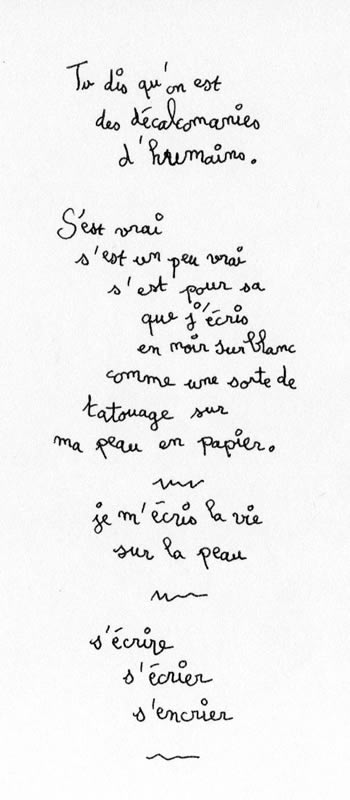 Tu dis qu'on est
des décalcomanies
d'humains.
S'est vrai
s'est un peu vrai
s'est pour sa
que j'écris
en noir sur blanc
comme une sorte de
tatouage sur
ma peau en papier.
je m'écris la vie
sur la peau
s'écrire
s'écrier
s'encrier